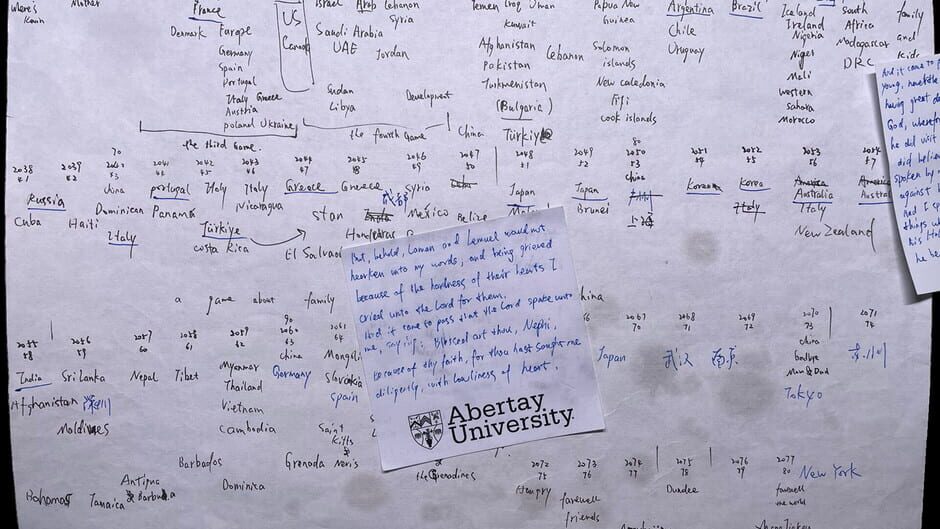 Where's Mother
Kevin
France
US
Canada
Israel Arab Lebanon
Syria
Yemen Iraq Oman
Kuwait
Papua New
Guinea
Argentina Brazil
Chile
Uruguay
Iceland
Ireland
Nigeria
Niger
Mali
western
sahara
Morocco
south
Africa
Madagascar
DRC
family
and
kids
Denmark Europe
Germany
Spain
Portugal
Italy Greece
Austria
poland Ukraine
Saudi Arabia
UAE Jordan
Sudan
Libya
Development
Afghanistan Lebanon
Pakistan
Turkmenistan
(Bulgaria)
China Türkiye
Solomon
islands
New caledonia
Fiji
cook islands
the third Game.
the fourth Game
70
80
2038 2039 2040 2041 2042 2043 2044 2045 2046 2047 2048 2049 2050 2051 2052 2053 2054
41 42 43 44 45 46 47 48 49 50 51 52 53 54 55 56 57
Russia China portugal Italy Italy Greece Greece Syria Japan Japan China Korea Korea America America
Cuba Haiti Dominican Panama Nicaragua stan Mexico Belize Brunei Italy Australia
Italy Türkiye Italy
costa Rica El Salvador Honduras New Zealand
上海
a game about family
China
90
2055 2056 2057 2058 2059 2060 2061 2067 2068 2069 2070 2071
58 59 60 61 62 63 64 70 71 72 73 74
India Sri Lanka Nepal Tibet Myanmar China Germany Mongolia Japan 武汉 南京 China
Afghanistan 深圳 Thailand Slovakia Goodbye
Spain Mom & Dad
Maldives Vietnam Tokyo
Cambodia Saint
Kitts
Barbados Grenada Nevis the Grenadines
Bahamas Jamaica Antigua
& Barbuda
Dominica
2072 2073 2074 2075 2076 2077
75 76 77 78 79 80
New York
Hungry farewell Dundee farewell
friends the world
But, behold, Laman and Lemuel would not
hearken unto my words; and being grieved
because of the hardness of their hearts I
cried unto the Lord for them.
And it came to pass that the Lord spake unto
me, saying: Blessed art thou, Nephi,
because of thy faith, for thou hast sought me
diligently, with lowliness of heart.
Abertay
University
And it came to p
young, nevertheless
having great de
God, wherefore
he did visit
did believe
spoken by m
against
And I sp
things w
his Hol
he be